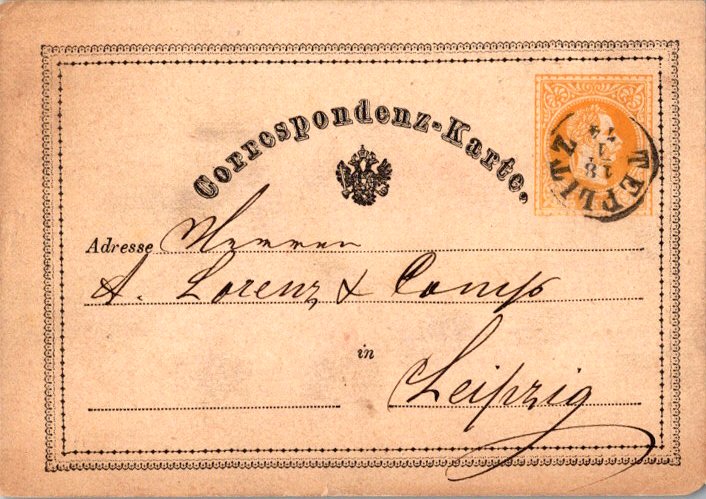 Correspondenz-Karte.
TEPLITZ
18
74
Adresse Herren
A. Lorenz & Comp
in
Leipzig